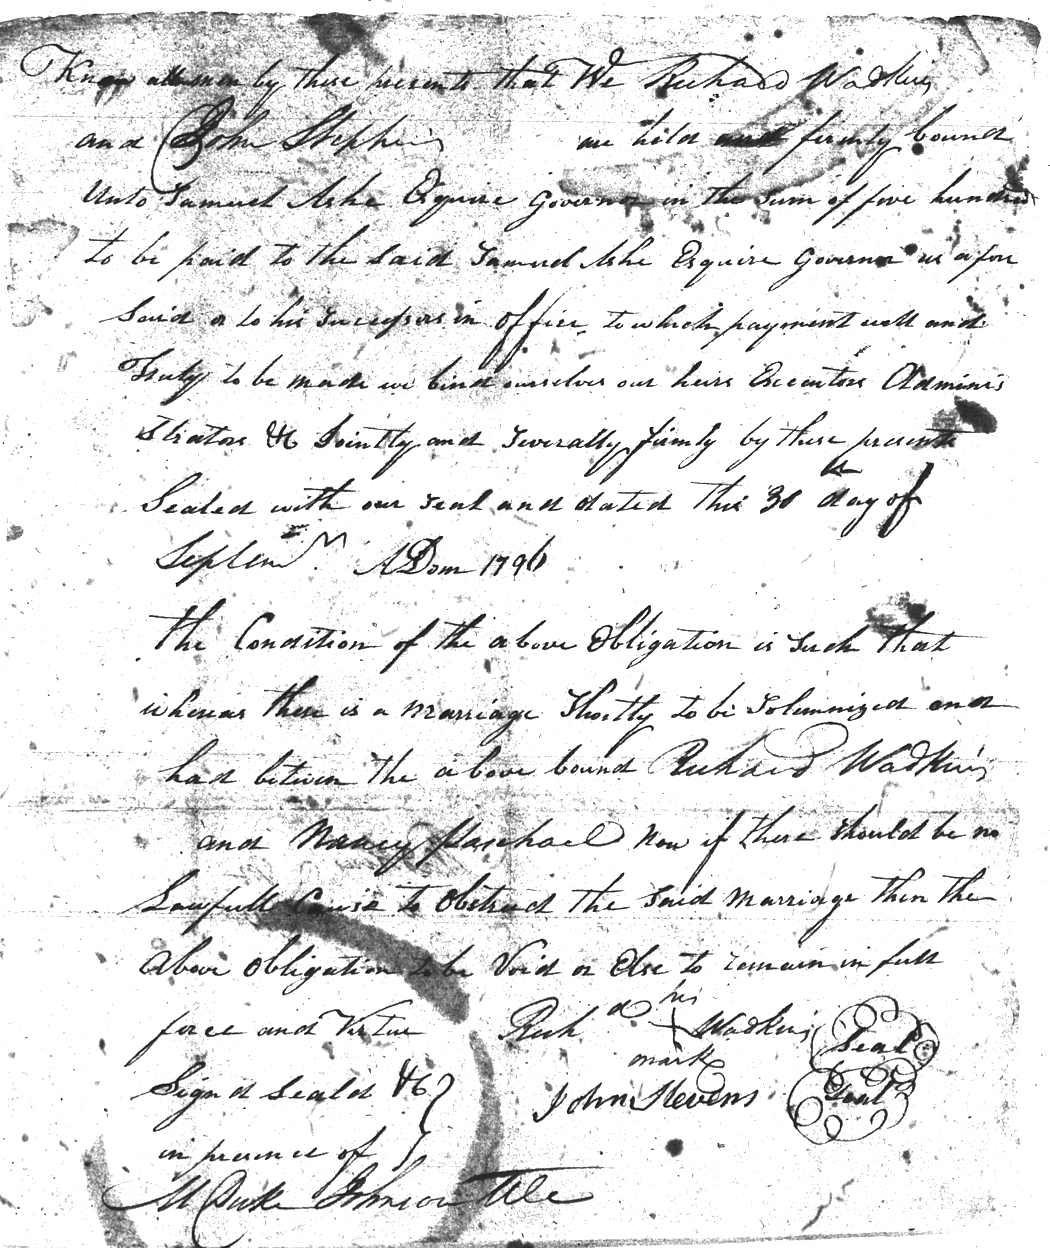 Know all men by these presents that We Richard Wadkins
and John Stephens are held and firmly bound
Unto Samuel Ashe Esquire Governor in the Sum of five hundred
to be paid to the Said Samuel Ashe Esquire Governor as afore
Said or to his Successors in office to which payment well and
Truly to be made we bind ourselves our heirs Executors Adminis
Strators &c Jointly and Severally firmly by these presents
Sealed with our Seal and dated this 30th day of
Septem A Dom 1796
The Condition of the above Obligation is Such that
whereas there is a Marriage Shortly to be Solemnized and
had between the above bound Richard Wadkins
and Nancy Paschael Now if there Should be no
Lawfull Cause to Obstruct the Said Marriage then the
Above Obligation to be Void or Else to remain in full
force and Virtue Richd his Wadkins Seal
mark
Signd Seald &c John Stevens Seal
in presence of
M Duke Johnson